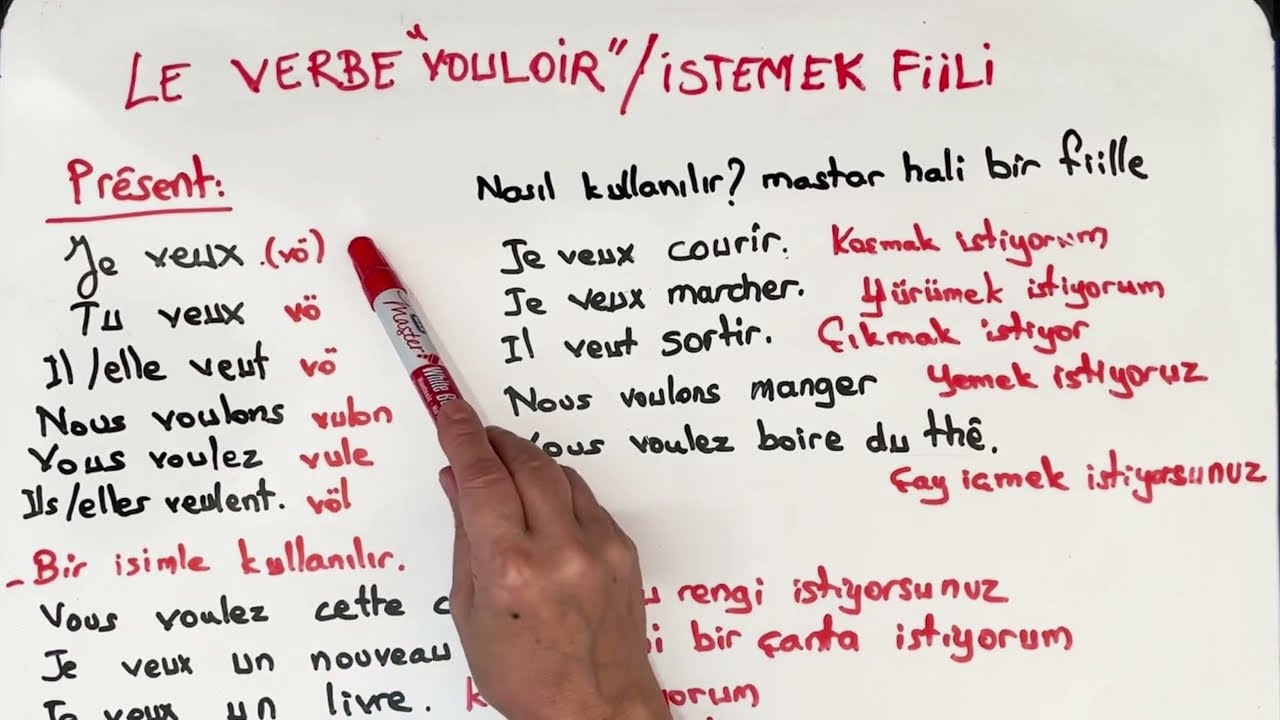 LE VERBE "VOULOIR" / İSTEMEK FİİLİ
Présent:
Je veux (vö)
Tu veux vö
Il/elle veut vö
Nous voulons vulon
Vous voulez vule
Ils/elles veulent. völ
Nasıl kullanılır? mastar hali bir fiille
Je veux courir. Koşmak istiyorum
Je veux marcher. Yürümek istiyorum
Il veut sortir. Çıkmak istiyor
Nous voulons manger Yemek istiyoruz
voulez boire du thê.
Çay içmek istiyorsunuz
- Bir isimle kullanılır.
Vous voulez cette rengi istiyorsunuz
Je veux un nouveau bir çanta istiyorum
Je veux un livre.
Master
White